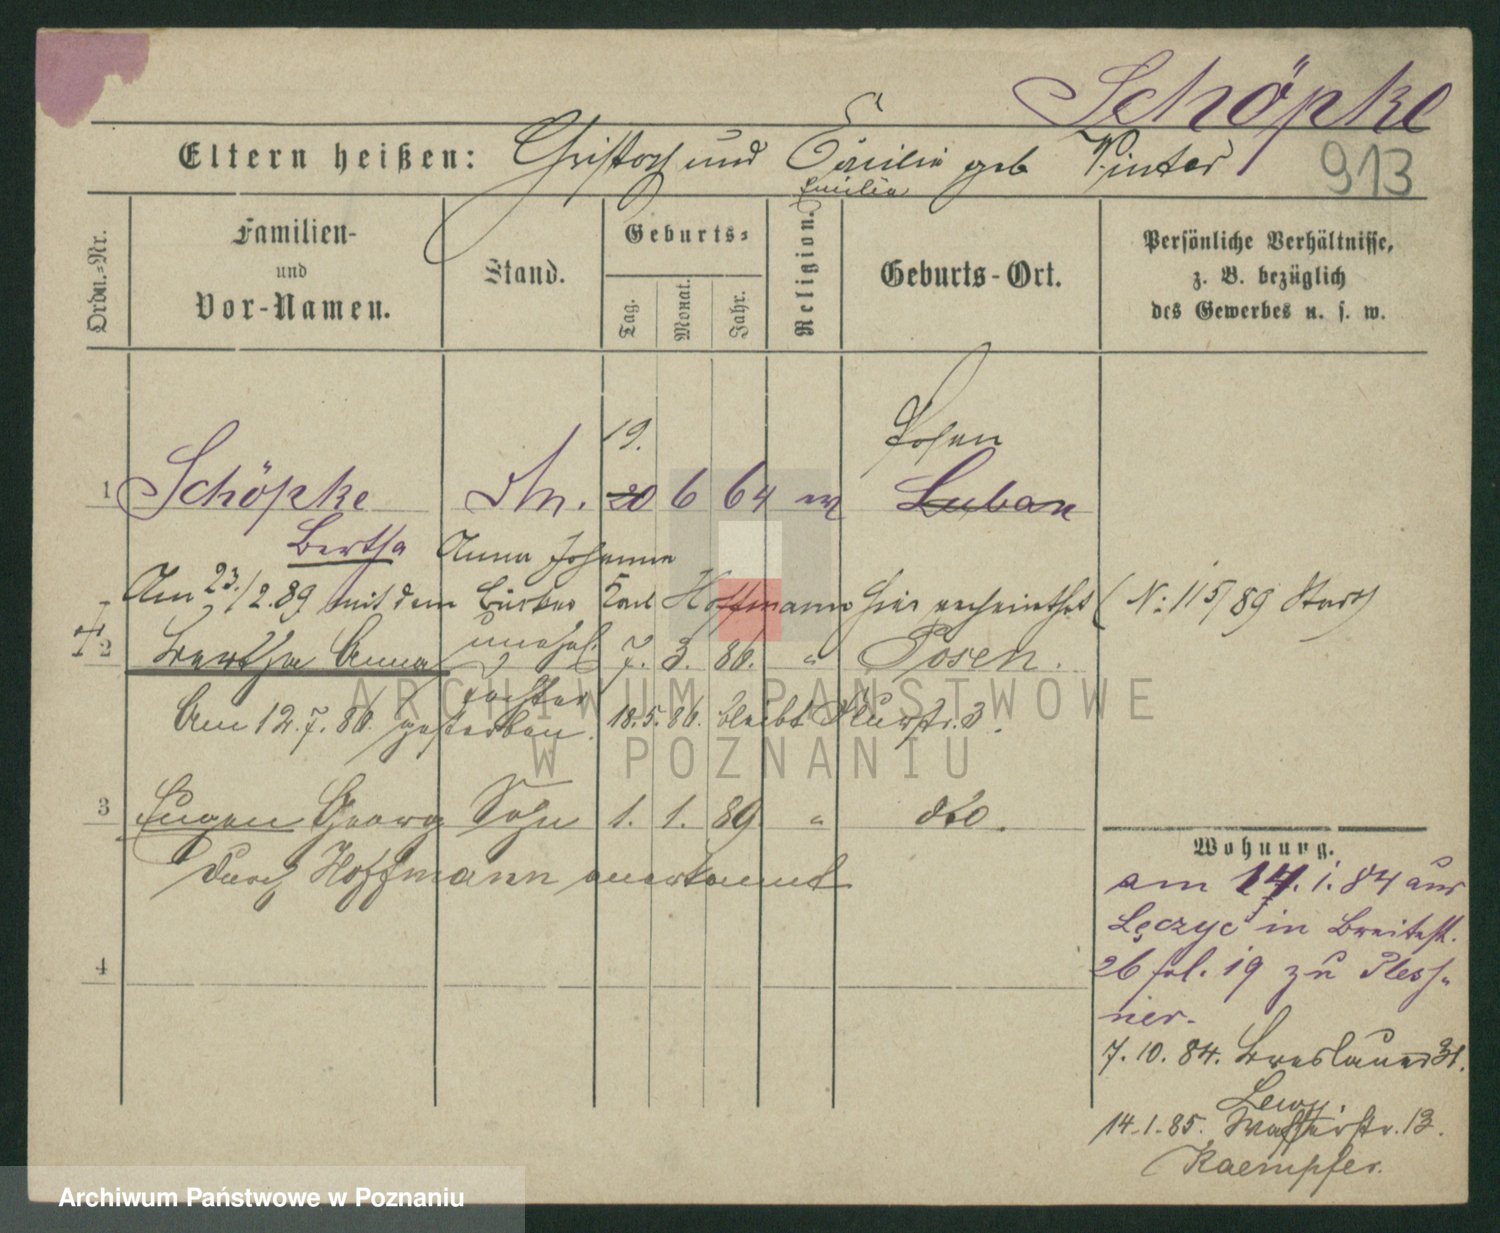 Schöpke
Eltern heißen: Christoph und Cäcilie geb Winter
Emilie
913
Ordn.-Nr.
Familien-
und
Vor-Namen.
Stand.
Geburts-
Tag.
Monat.
Jahr.
Religion.
Geburts-Ort.
Persönliche Verhältnisse,
z. B. bezüglich
des Gewerbes u. s. w.
19. Posen
1 Schöpke 20 6 64 Luban
Bertha Anna Johanna
Am 23./2.89 mit dem Karl Hoffmann hier verheirathet (N: 115/89 Sta
2 Bertha Anna unehel. 7. 3. 86. " Posen.
Tochter
Am 12.7.86 gestorben. 18.5.86. bleibt 3.
3 Eugen Georg Sohn 1. 1. 89. " dto.
durch Hoffmann anerkannt
4
Wohnung.
am 14. 1. 84 aus
Lęczyc in Breitestr.
26 fol. 19 zu Pless-
ner.
7. 10. 84. Breslauer 31.
Lewy.
14.1.85. Wasserstr. 13.
Kaempfer.
ARCHIWUM PAŃSTWOWE
W POZNANIU
Archiwum Państwowe w Poznaniu